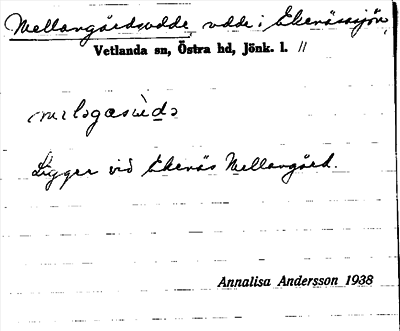 Mellangårdsudde, udde i Ekenässjön,
Vetlanda sn, Östra hd, Jönk. l. //
Ligger vid Ekenäs Mellangård.
Annalisa Andersson 1938